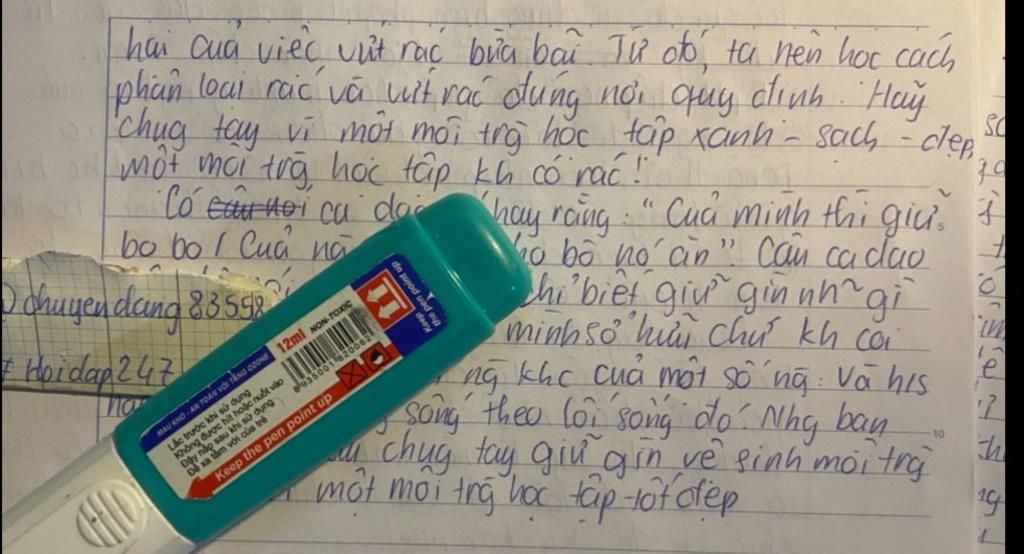 hại của việc vứt rác bừa bãi. Từ đó, ta nên học cách
phân loại rác và vứt rác đúng nơi quy định. Hãy
chug tay vì một môi trg học tập xanh - sạch - đẹp,
một môi trg học tập kh có rác!
Có câu nói ca dao hay rằng: "Của mình thì giữ
bo bo / Của ng cho bò nó ăn". Câu ca dao
chỉ biết giữ gìn nh~ gì
mình sở hữu chứ kh coi
ng khc của một số ng. Và hs
sống theo lối sống đó. Nhg bạn
chug tay giữ gìn vệ sinh môi trg
một môi trg học tập tốt đẹp
chuyendang83598
# Hoidap247
Keep
the pen point up
12ml NON-TOXIC
8935001820062
MAU KHÔ - AN TOÀN VỚI TẦNG OZONE
Lắc trước khi sử dụng
Không được hít hoặc nuốt vào
Đậy nắp sau khi sử dụng
Để xa tầm với của trẻ
Keep the pen point up
10